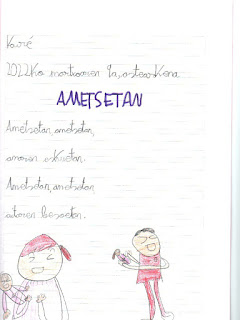 Xavié
2022ko martxoaren 1a, asteartea
AMETSETAN
Ametsetan, ametsetan,
amaren eskuetan.
Ametsetan, ametsetan
aitaren besoetan.